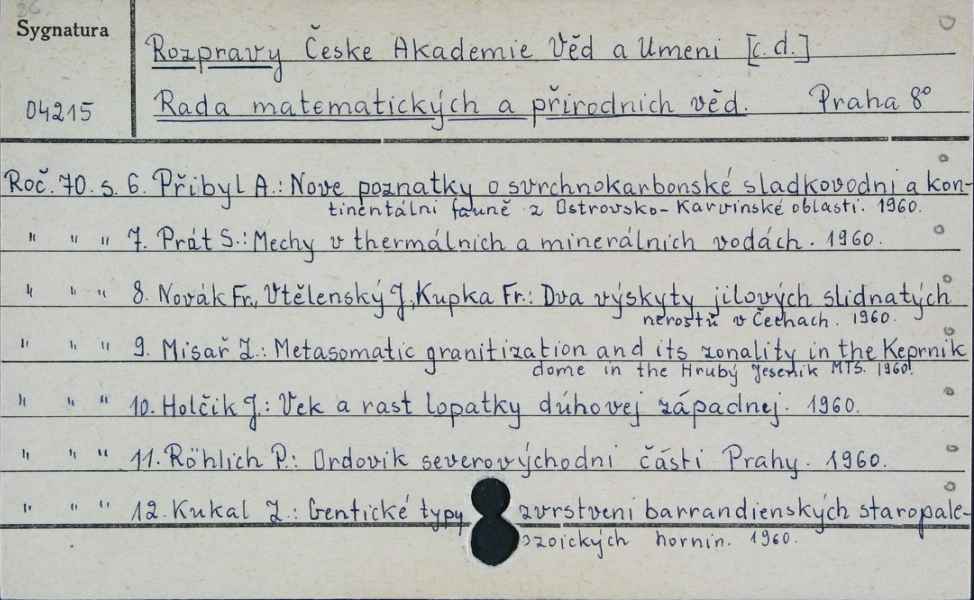 Sygnatura
04215
Rozpravy Česke Akademie Věd a Umeni [c.d.]
Rada matematických a přirodnich věd. Praha 8°
Roč. 70. s. 6. Přibyl A.: Nove poznatky o svrchnokarbonské sladkovodni a kon-
tinentálni fauně z Ostrovsko-Karvinské oblasti. 1960.
" " " 7. Prát S.: Mechy v thermálnich a minerálnich vodách. 1960.
" " " 8. Novák Fr., Vtělenský J., Kupka Fr.: Dva výskyty jilových slidnatých
nerostů v Čechach. 1960.
" " " 9. Misař Z.: Metasomatic granitization and its zonality in the Keprnik
dome in the Hrubý Jesenik MTS. 1960.
" " " 10. Holčik J.: Vek a rast lopatky dúhovej západnej. 1960.
" " " 11. Röhlich P.: Ordovik severovýchodni části Prahy. 1960.
" " " 12. Kukal Z.: Gentické typy zvrstveni barrandienských staropale-
ozoických hornin. 1960.